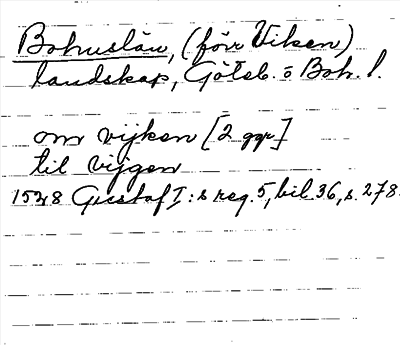 Bohuslän, (förr Viken)
landskap, Göteb. o Boh. l.
om vijken [2 ggr]
til vijgen
1528 Gustaf I:s reg. 5, bil. 36, s. 278.